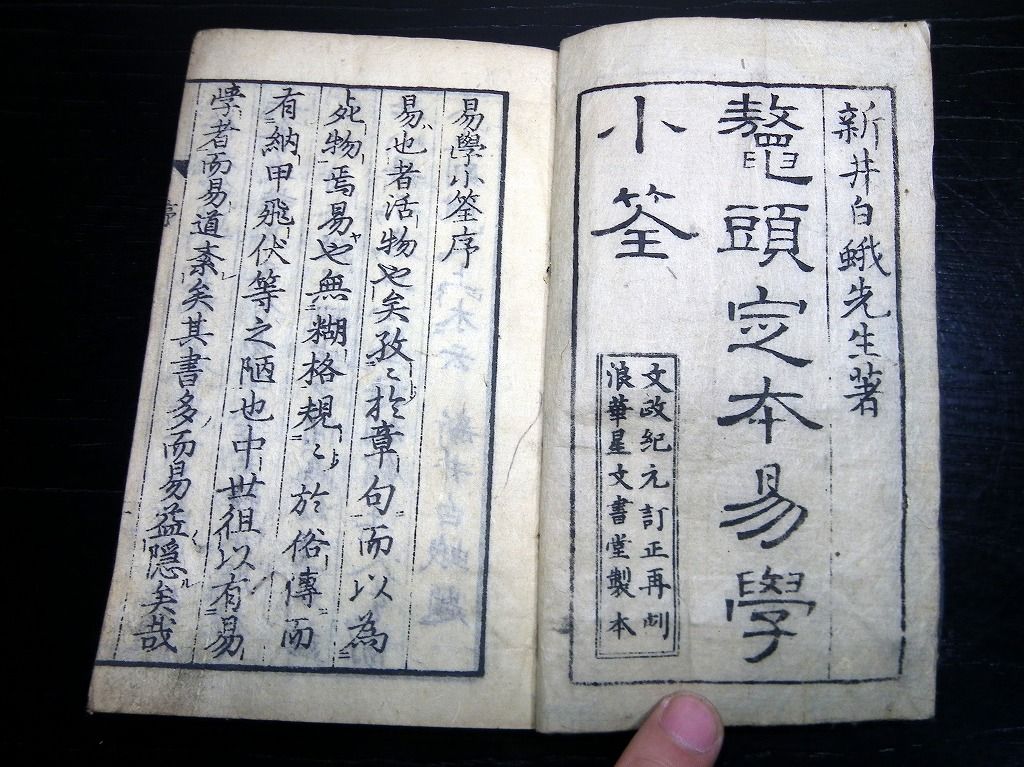 新井白蛾先生著
鼇頭定本易學
小筌
文政紀元訂正再刻
浪華星文書堂製本
易學小筌序
易也者活物也矣孜〻於章句而以為
死物焉易也無糊格規〻於俗傳而
有納甲飛伏等之陋也中世徂以有易
學者而易道紊矣其書多而易益隠矣哉
序